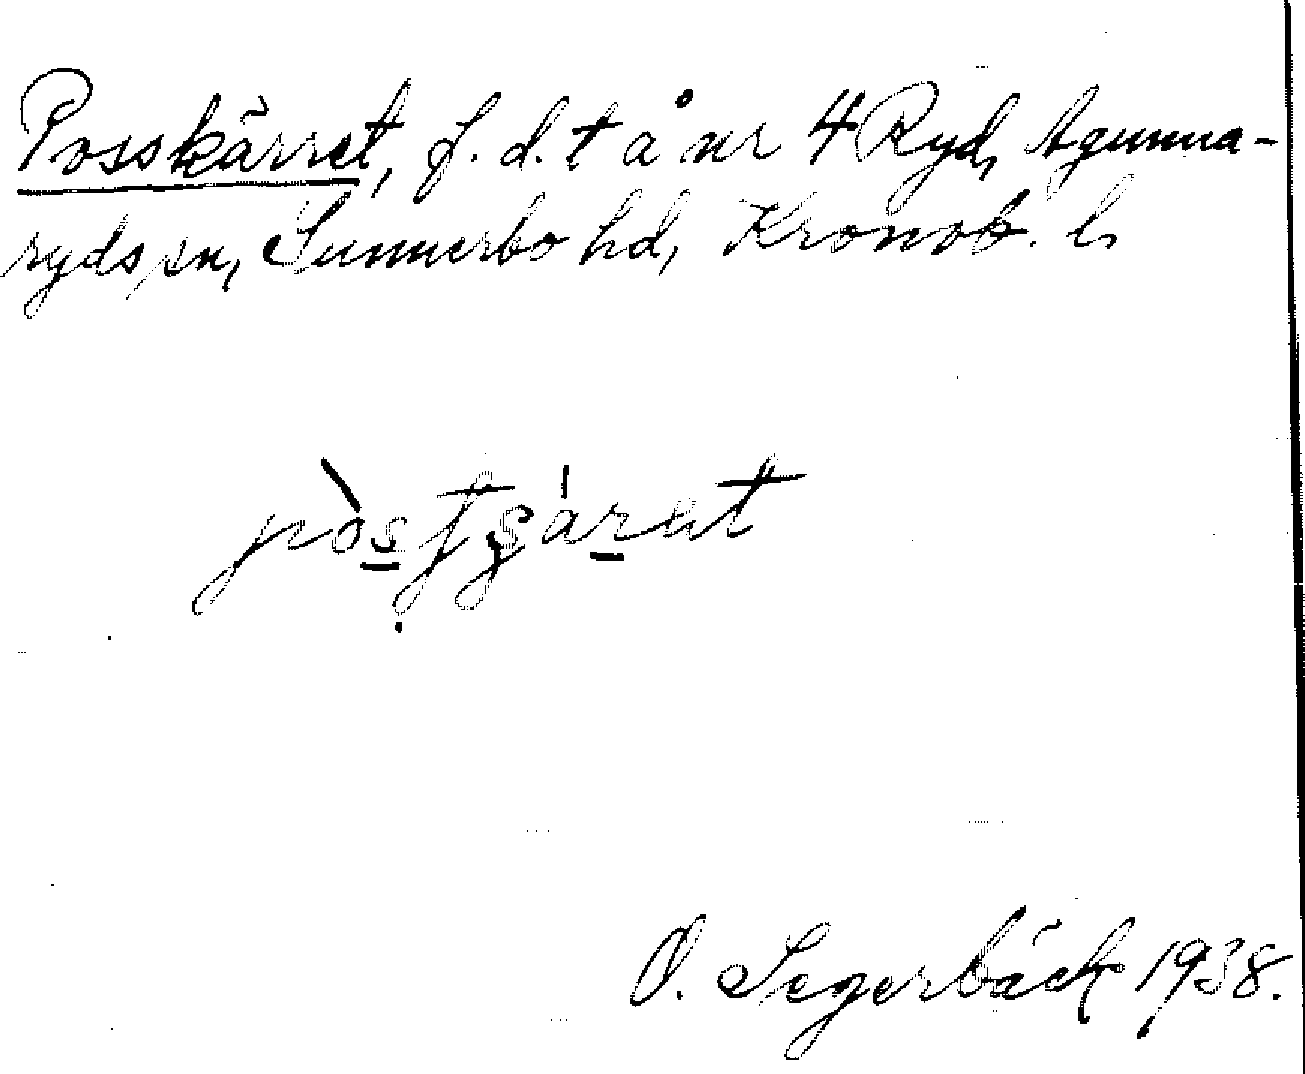 Posskärret, f. d. t å nr 4 Ryd, Agunna-
ryds sn, Sunnerbo hd, Kronob. l.
O. Segerbäck 1938.